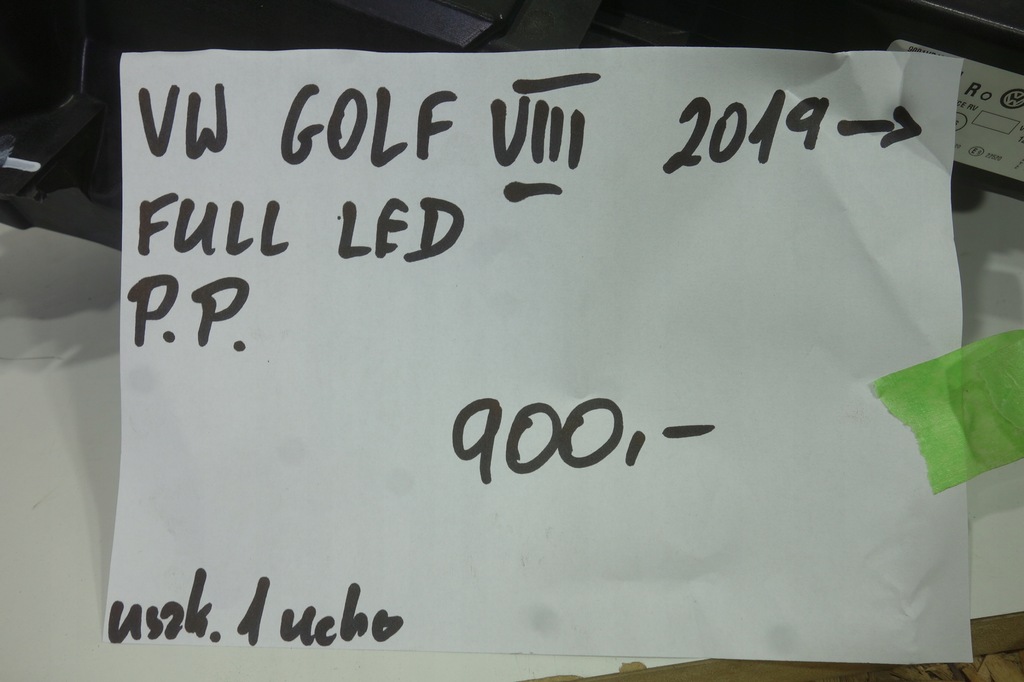 VW GOLF VIII 2019 →
FULL LED
P.P.
900,-
uszk. 1 ucho